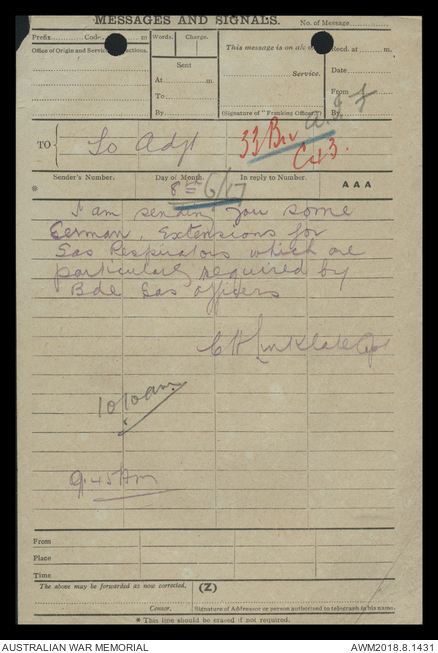 MESSAGES AND SIGNALS.
No. of Message
Prefix Code m
Words. Charge.
Office of Origin and Service Instructions.
This message is on a/c of
Recd. at m.
Sent
Date
Service.
At m.
From
To
By
(Signature of "Franking Officer")
By
TO
To Adjt
33 Bn A.I.F
C43.
Sender's Number.
Day of Month.
In reply to Number.
AAA
8th 6/17
*
I am sending you some
German. Extensions for
Gas Respirators which are
particularly required by
Bde Gas officers
C H Linklater Capt
10/10 am.
9.45 Am
From
Place
Time
The above may be forwarded as now corrected.
(Z)
Censor.
Signature of Addressor or person authorised to telegraph in his name.
* This line should be erased if not required.
AUSTRALIAN WAR MEMORIAL
AWM2018.8.1431